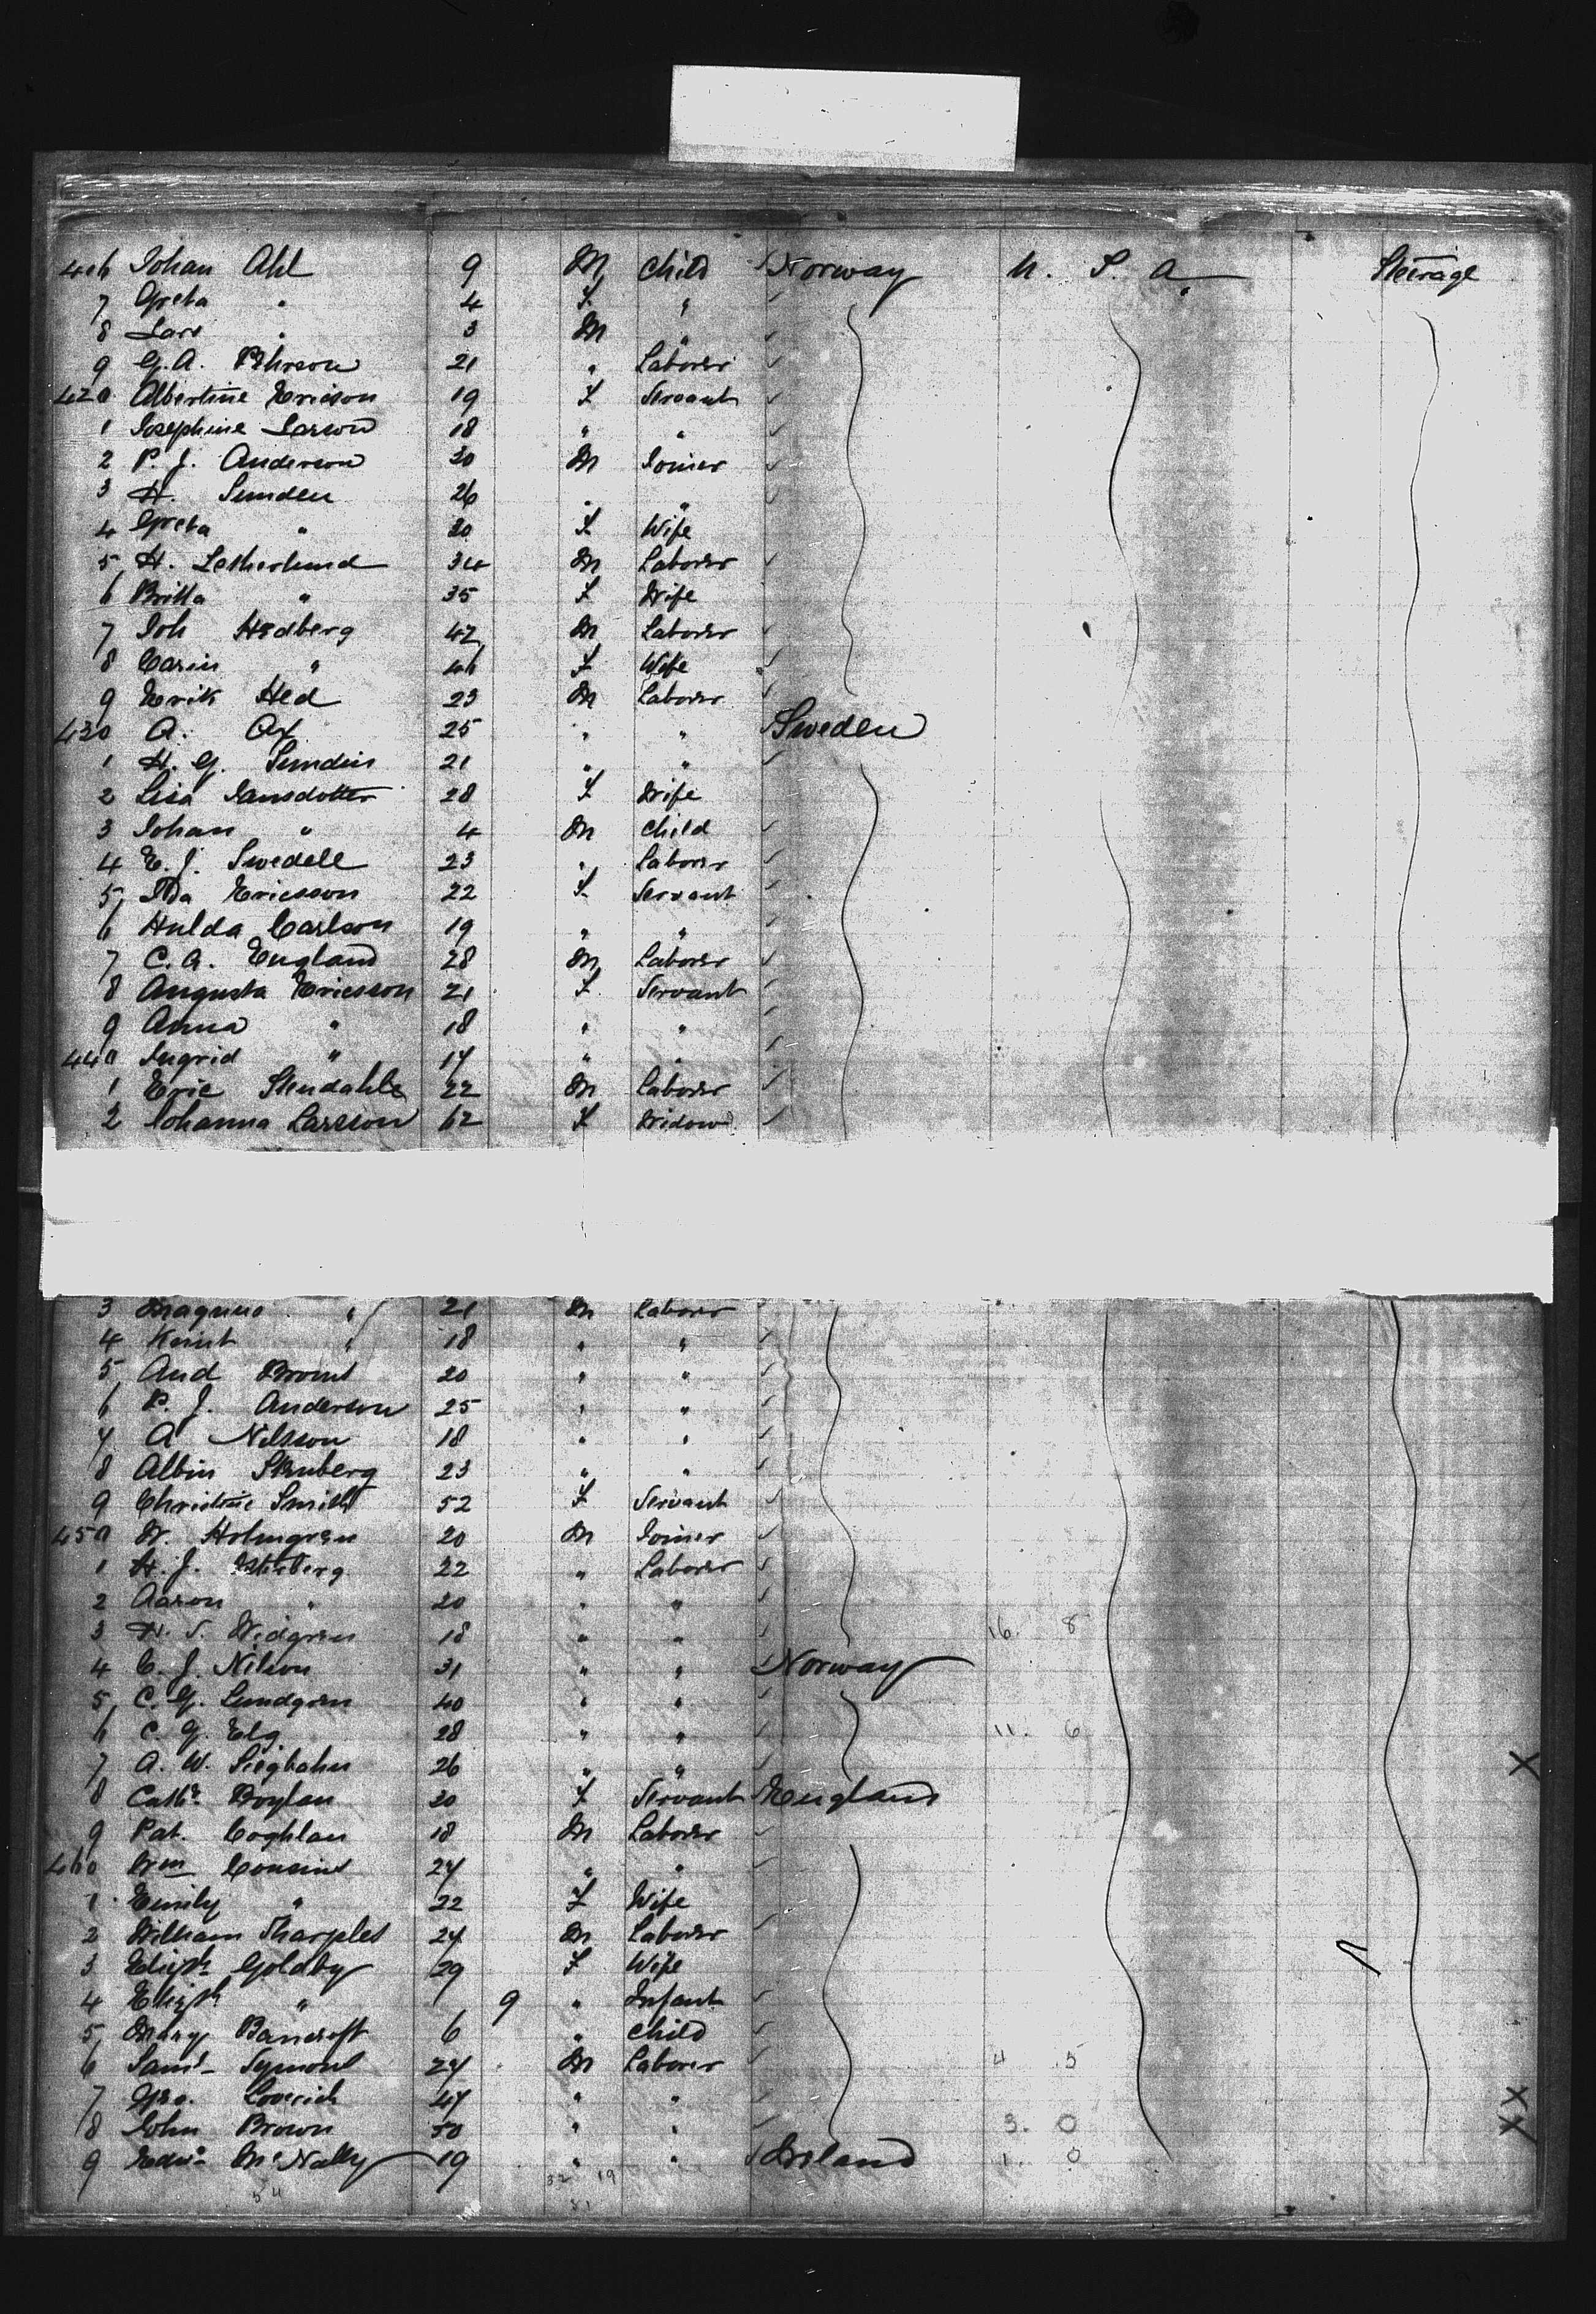 416 Johan Ahl 9 M Child Norway U. S. A Steerage
7 Greta " 4 F "
8 Lars " 3 M "
9 G. A. Pehrson 21 " Laborer
420 Albertine Ericson 19 F Servant
1 Josephine Larson 18 " "
2 P. J. Anderson 20 M Joiner
3 H. Sunden 26 " "
4 Greta " 30 F Wife
5 H. 34 M Laborer
6 Britta " 35 F Wife
7 Joh Hedberg 42 M Laborer
8 Carin " 46 F Wife
9 Erik Hed 23 M Laborer
430 A. Ax 25 " " Sweden
1 H. G. Sundin 21 " "
2 Lisa Jansdotter 28 F Wife
3 Johan " 4 M Child
4 E. J. Swedell 23 " Laborer
5 Ida Ericsson 22 F Servant
6 Hulda Carlson 19 " "
7 C. A. England 28 M Laborer
8 Augusta Ericsson 21 F Servant
9 Anna " 18 " "
440 Ingrid " 17 " "
1 Eric Stendahle 22 M Laborer
2 Johanna Larsson 62 F Widow
3 Magnus " 21 M Laborer
4 " 18 " "
5 And 20 " "
6 P. J. Anderson 25 " "
7 A Nilsson 18 " "
8 Albin Stenberg 23 " "
9 Christine Smith 52 F Servant
450 W. Holmgren 20 M Joiner
1 H. J. 22 " Laborer
2 Aaron " 20 " "
3 H. S. Widgren 18 " " 16. 8
4 C. J. Nilson 31 " " Norway
5 C. G. Lundgren 40 " "
6 C. G. Elg 28 " " 11. 6
7 A. W. Siegbahn 26 " " X
8 Cathe Boylan 30 F Servant England
9 Pat. Coghlan 18 M Laborer
460 Wm Cousins 24 " "
1 Emily " 22 F Wife
2 William Sharples 24 M Laborer
3 Elizth Goldby 29 F Wife
4 Elizth " 9 " Infant
5 Mary Bancroft 6 " Child
6 Saml Symons 24 M Laborer 4 5
7 Geo. 47 " "
8 John Brown 50 " " 3. 0 XX
9 Edwd McNally 19 " " Ireland 1. 0
54 32 19
81